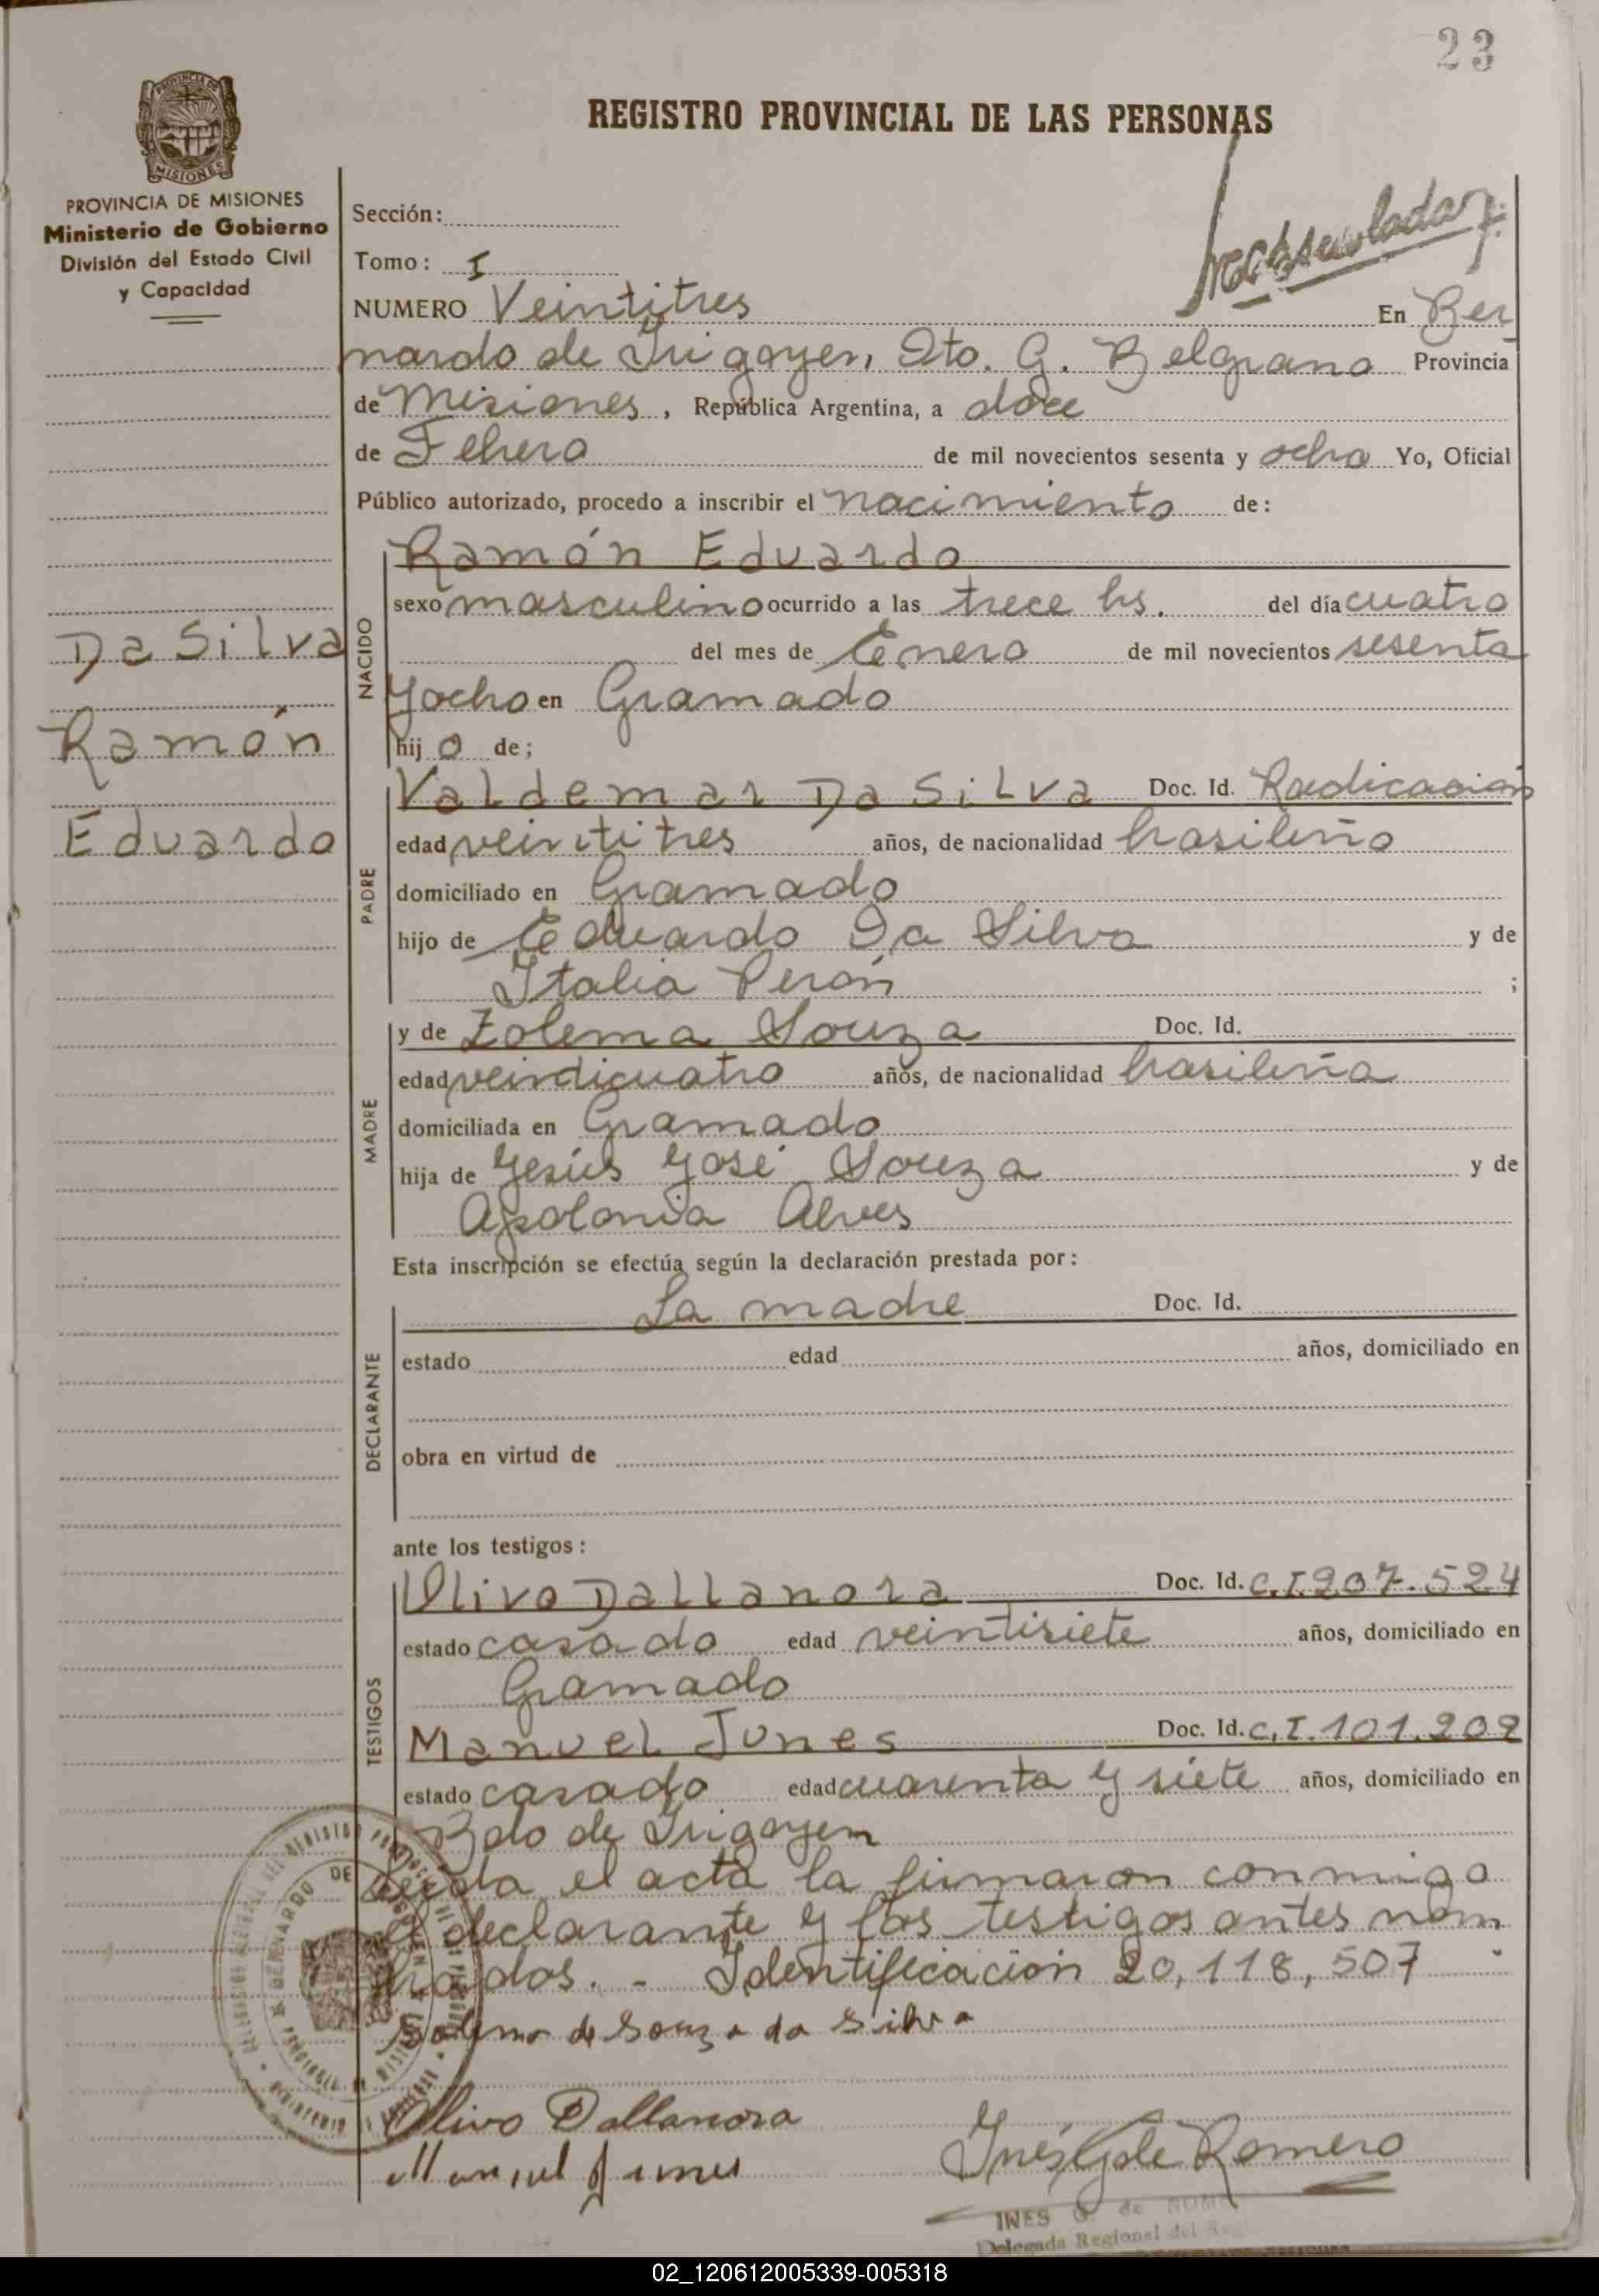 23
REGISTRO PROVINCIAL DE LAS PERSONAS
PROVINCIA DE MISIONES
Ministerio de Gobierno
División del Estado Civil
y Capacidad
Sección:
Tomo: I
NUMERO Veintitres En Ber
nardo de Irigoyen, Dto. G. Belgrano Provincia
de Misiones, República Argentina, a doce
de Febrero de mil novecientos sesenta y ocho Yo, Oficial
Público autorizado, procedo a inscribir el nacimiento de:
Da Silva
Ramón
Eduardo
NACIDO
Ramón Eduardo
sexo masculino ocurrido a las trece hs. del día cuatro
del mes de Enero de mil novecientos sesenta
y ocho en Gramado
hijo de;
PADRE
Valdemar Da Silva Doc. Id. Radicación
edad veintitres años, de nacionalidad brasileño
domiciliado en Gramado
hijo de Eduardo Da Silva y de
Italia Perón ;
MADRE
y de Zolema Souza Doc. Id.
edad veindicuatro años, de nacionalidad brasileña
domiciliada en Gramado
hija de Yesús Yosé Souza y de
Apolonia Alves
Esta inscripción se efectúa según la declaración prestada por:
DECLARANTE
La madre Doc. Id.
estado edad años, domiciliado en
obra en virtud de
ante los testigos:
TESTIGOS
Olivo Dallanora Doc. Id. C.I. 207.524
estado casado edad veintisiete años, domiciliado en
Gramado
Manuel Junes Doc. Id. C.I. 101.202
estado casado edad cuarenta y siete años, domiciliado en
Bdo de Irigoyen
Leída el acta la firmaron conmigo
declarante y los testigos antes nom
brados. - Identificación 20,118,507
Solema de Souza da Silva
Olivo Dallanora
Manuel Junes
Inés G de Romero
INES G. de ROM
Delegada Regional del Reg
02_120612005339-005318